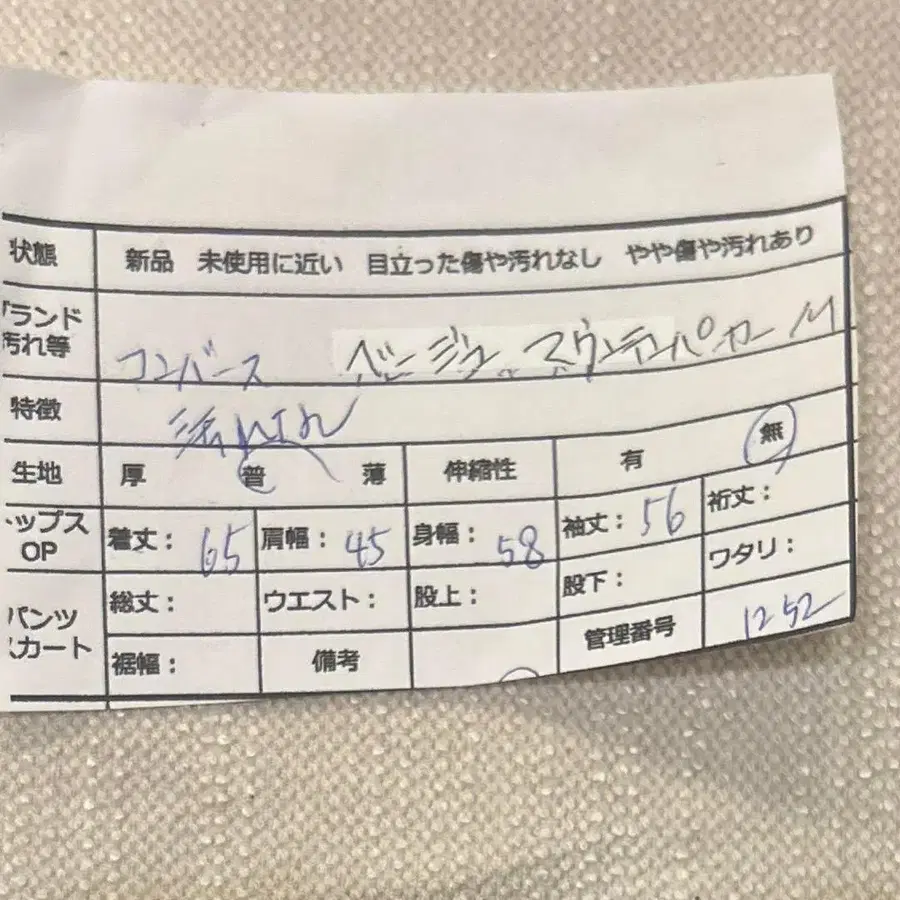 状態 新品 未使用に近い 目立った傷や汚れなし やや傷や汚れあり
ブランド コンバース ベージュ マウンテンパーカー M
汚れ等
特徴
生地 厚 普 薄 伸縮性 有 無
トップス OP 着丈: 65 肩幅: 45 身幅: 58 袖丈: 56 裄丈:
パンツ スカート 総丈: ウエスト: 股上: 股下: ワタリ:
裾幅: 備考 管理番号 1252